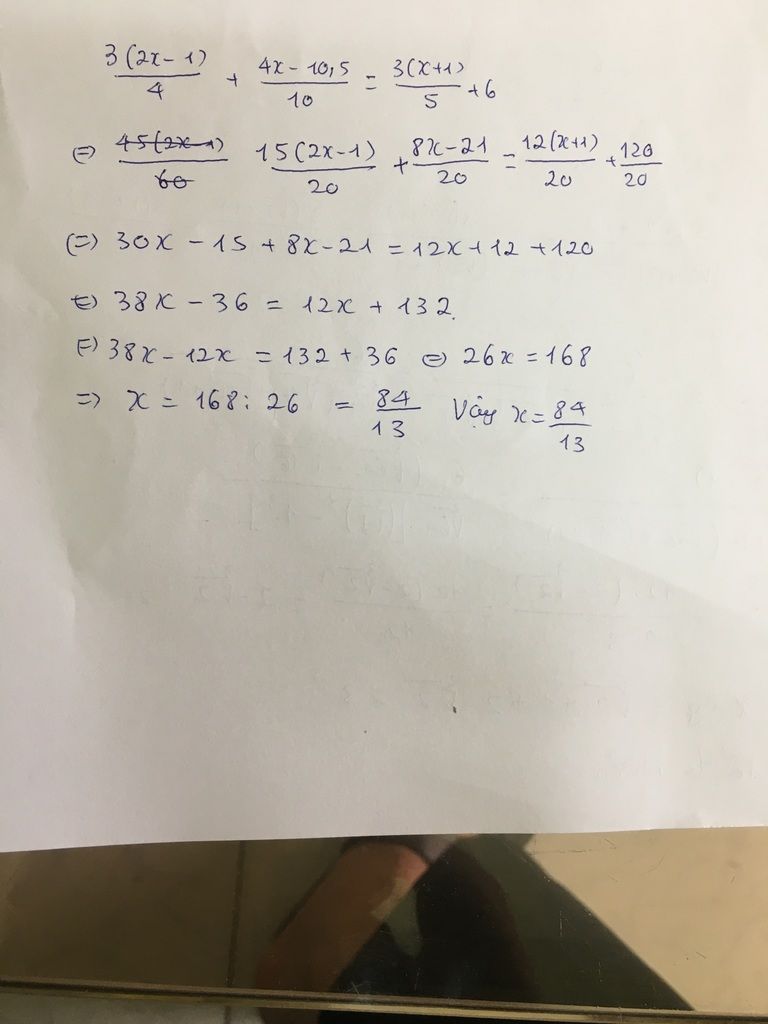 3(2x-1)/4 + 4x-10,5/10 = 3(x+1)/5 +6
⇔ 45(2x-1)/60 15(2x-1)/20 + 8x-21/20 = 12(x+1)/20 + 120/20
⇔ 30x - 15 + 8x - 21 = 12x + 12 + 120
⇔ 38x - 36 = 12x + 132.
⇔ 38x - 12x = 132 + 36 ⇔ 26x = 168
⇒ x = 168 : 26 = 84/13 Vậy x = 84/13